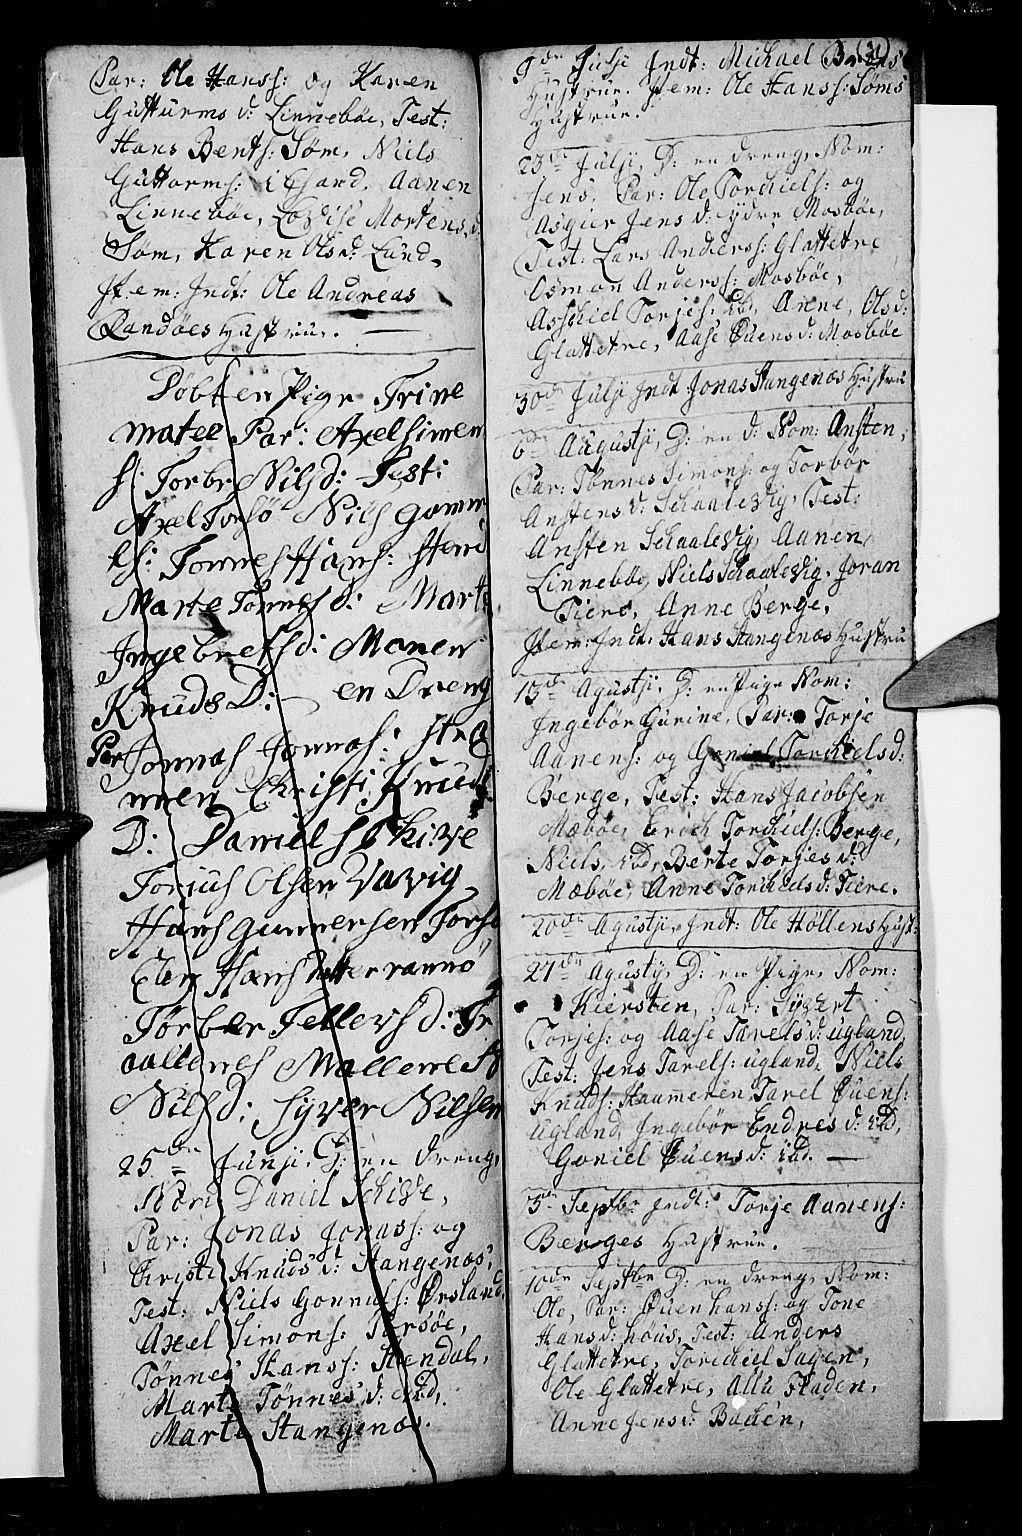 Par: Ole Hanss: og Karen
Gutturms d: Linnebøe, Test:
Hans Bents: Søm, Niels
Guttorms: Aanen
Linnebøe, Lovise Mortens d:
Søm, Karen Ols d: Lund,
It: em: Indt: Ole Andreas
Randøes Hustrue.
Døbt en Pige Trine
matee Par: Axel simen
s: Torbr Nils d: Test:
Axel Torsö Nils gomm
es: Tonnes Hans: Stend
Marte Tonnes d: Mart
Ingebrets d: Maren
Knuds D: en Dreng
Par Jonnas Jonnas: Sta
nnen Christi Knuds
D: Daniel Skive
Torius Olsen Vavig
Hans gunnersen Torsø
Elen Hans
Tørber Tellevs d: Tr
aallenes Mallene
Nils d: Syver Nilsen
25de Junji, D: en dreng,
Nom: Daniel Schive,
Par: Jonas Jonass: og
Christi Knuds d: Stangenæs,
Test: Niels Gonnuls: Ørsland,
Axel Simons: Torsøe,
Tønnes Hanss: Stendal,
Marte Tønnes d: ibd,
Marte Stangenæs.
9de Julji Indt: Michael
Hustrue. It:em: Ole Hanss: Søms
Hustrue.
23de Julji, D: en dreng, Nom:
Jens, Par: Ole Torchiels: og
Asgier Jens d: ydre Mosbøe,
Test: Lars Anderss: Glattetre
Osmon Anderss: Mosbøe,
Asschiel Torjes: ibd, Anne, Ols d:
Glattetre, Aase Øuens d: Mosbøe
30de Julji Indt: Jonas Stangenæs Hustru
6te Augustji, D: en d: Nom: Ansten,
Par: Tønnes Simons: og Torbør
Anstens d: Schaalevig, Test:
Ansten Schaalevig, Aanen
Linnebøe, Niels Schaalevig, Joran
Tiere, Anne Berge,
It:em: Indt: Hans Stangenæs Hustru
13de Agustji, D: en Pige Nom:
Ingebør Gurine, Par: Torje
Aanens: og Goniel Torchiels d:
Berge, Test: Hans Jacobsen
Mæbøe, Erich Torchiels: Berge,
Niels, ibd, Berte Torjes d:
Mæbøe, Anne Torchiels d: Tiere.
20de Agustji, Indt: Ole Høllens Hust:
27de Agustji, D: en Pige, Nom:
Kiersten, Par: Syvert
Torjes: og Aase Tarels d: ugland,
Test: Jens Tarels: ugland, Niels
Knuds: Haumeren, Tarel Øuens:
ugland, Ingebør Endres d: ibd,
Goniel Øuens d: ibd.
3de Septbr Indt: Torje Aanens:
Berges Hustrue.
10de Septbr D: en dreng, Nom:
Ole, Par: Øuen hanss: og Tone
Hans d: høus, Test: Anders
Glattetre, Torchiel Sagen,
Ole Glattetre, Allu Fladen,
Anne Jens d: Bachen,